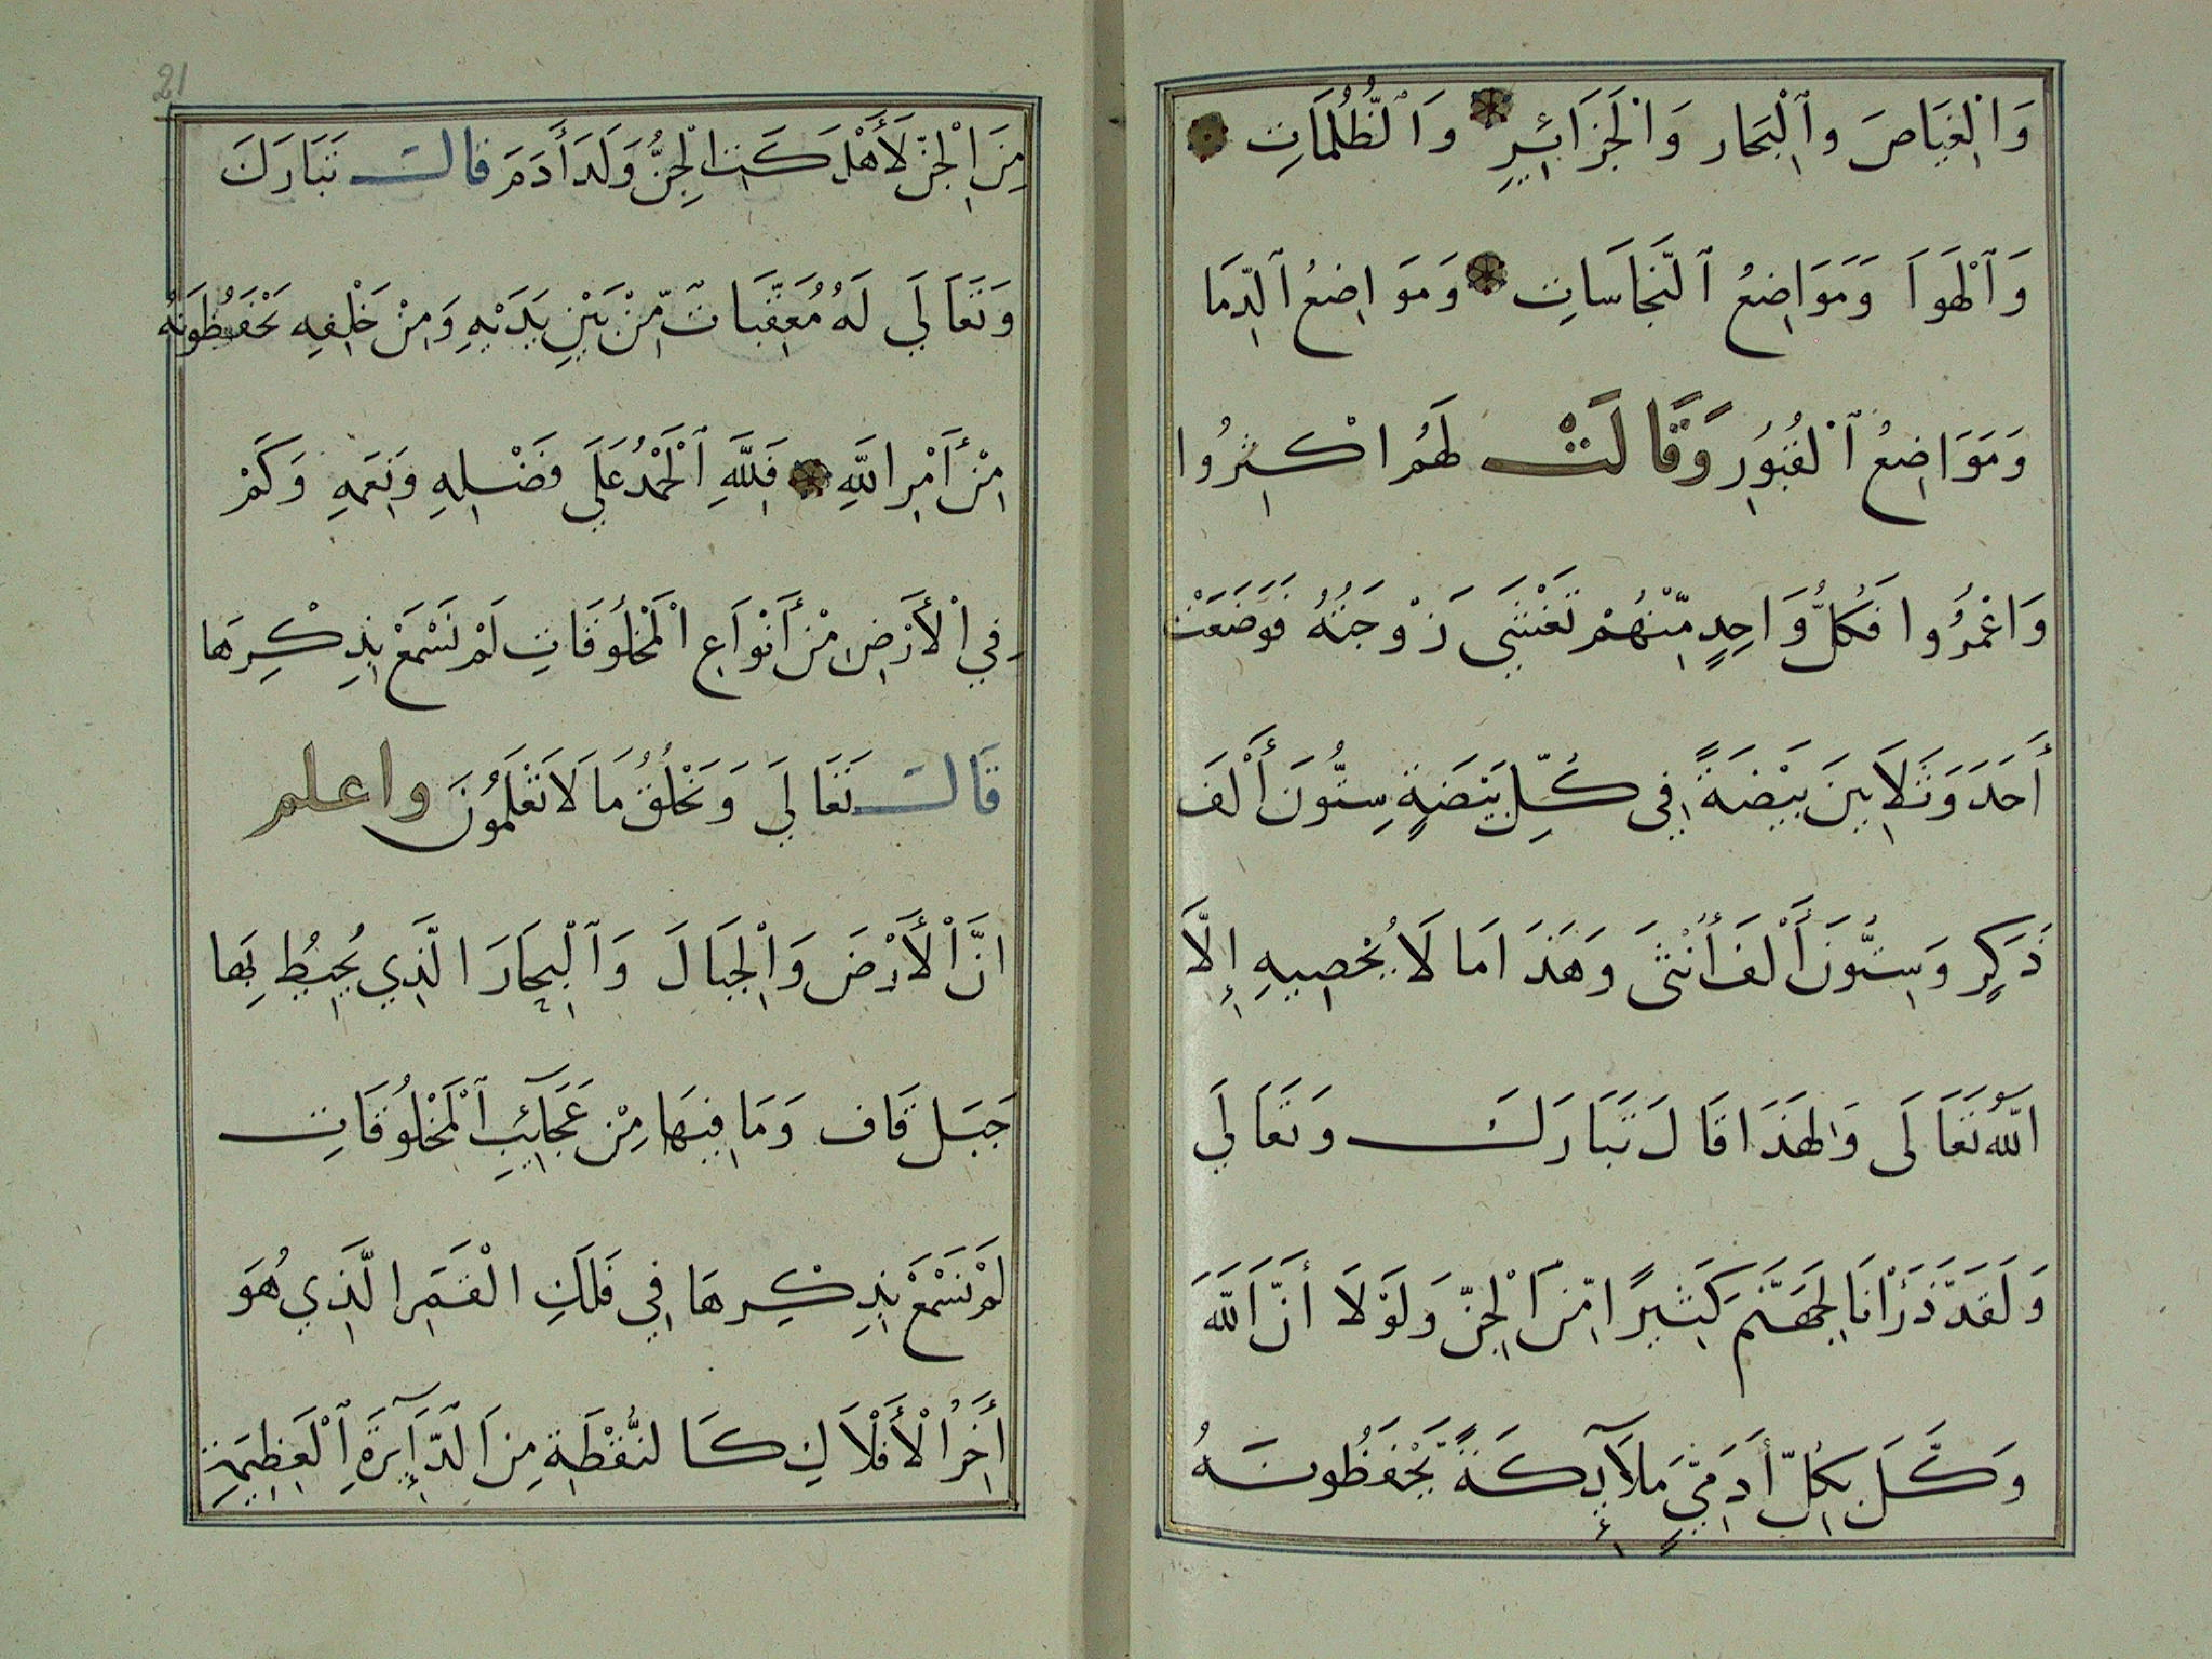 وَالْغِيَاصَ وٱلْبِحَار وَالْجَزَائِرِ وَٱلظُّلُمَاتِ
وَٱلْهَوَا وَمَوَاضِعُ ٱلنَّجَاسَاتِ وَمَوَاضِعُ ٱلدِّمَا
وَمَوَاضِعُ ٱلْقُبُورِ وَقَالَتْ لَهُمُ اكْثِرُوا
وَاعْمُرُوا فَكُلُّ وَاحِدٍ مِّنْهُمْ تَغَشَّى زَوْجَتُهُ فَوَضَعَتْ
أَحَدَ وَثَلَاثِينَ بَيْضَةً فِي كُلِّ بَيْضَةٍ سِتُّونَ أَلْفَ
ذَكَرٍ وَسِتُّونَ أَلْفَ أُنْثَى وَهَذَا مَا لَا يُحْصِيهِ إِلَّا
اللَّهُ تَعَالَى وَلِهَذَا قَالَ تَبَارَكَ وَتَعَالَي
وَلَقَدْ ذَرَأْنَا لِجَهَنَّمَ كَثِيرًا مِّنَ الْجِنِّ وَلَوْلَا أَنَّ اللَّهَ
وَكَّلَ بِكُلِّ أَدَمِيٍّ مَلَآئِكَةً يَحْفَظُونَهُ
21
مِنَ الْجِنِّ لَأَهْلَكَتِ الْجِنُّ وَلَدَ أَدَمَ قالَ تَبَارَكَ
وَتَعَالَي لَهُ مُعَقِّبَاتٌ مِّنْ بَيْنِ يَدَيْهِ وَمِنْ خَلْفِهِ يَحْفَظُونَهُ
مِنْ أَمْرِ اللَّهِ فَلِلَّهِ ٱلْحَمْدُ عَلَي فَضْلِهِ وَنِعَمِهِ وَكَمْ
فِي الْأَرْضِ مِنْ أَنْوَاعِ الْمَخْلُوقَاتِ لَمْ نَسْمَعْ بِذِكْرِهَا
قَالَ تَعَالَي وَيَخْلُقُ مَا لَا تَعْلَمُونَ واعلم
انَّ الْأَرْضَ وَالْجِبَالَ وَٱلْبِحَارَ الَّذِي يُحِيطُ بِهَا
جَبَل قَاف وَمَا فِيهَا مِنْ عَجَآئِبِ ٱلْمَخْلُوقَاتِ
لَمْ نَسْمَعْ بِذِكْرِهَا فِي فَلَكِ الْقَمَرِ الَّذِي هُوَ
أَخِرُ الْأَفْلَاكِ كَالنُّقْطَةِ مِنَ الدَّآئِرَةِ ٱلْعَظِيمَةِ